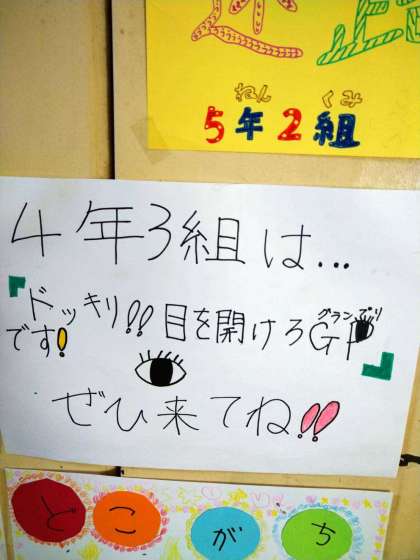 ねん くみ
5年2組
4年3組は...
『ドッキリ!!目を開けろGP
グランプリ
です!』
ぜひ来てね!!
どこがち